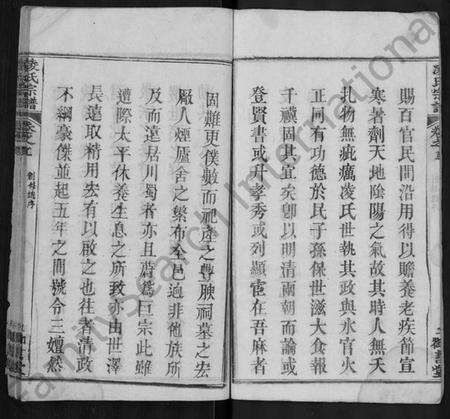 賜百官民間沿用得以贍養老疾節宣
寒暑劑天地陰陽之氣故其時人無夭
札物無疵癘凌氏世執其政與水官火
正同有功德於民子孫保世滋大食報
千禩固其宜矣卽以明清兩朝而論或
登賢書或升孝秀或列顯宦在吾麻者
固難更僕數而祀產之尊腴祠墓之宏
厰人煙廬舍之櫛布全邑逈非他族所
及而遠居川蜀者亦且蔚爲巨宗此雖
遭際太平休養生息之所致亦由世澤
長遠取精用宏有以啟之也往者清政
不綱豪傑並起五年之間號令三嬗然
凌氏宗譜
卷首之五
創修譜序
凌氏宗譜
卷首之五
FamilySearch International